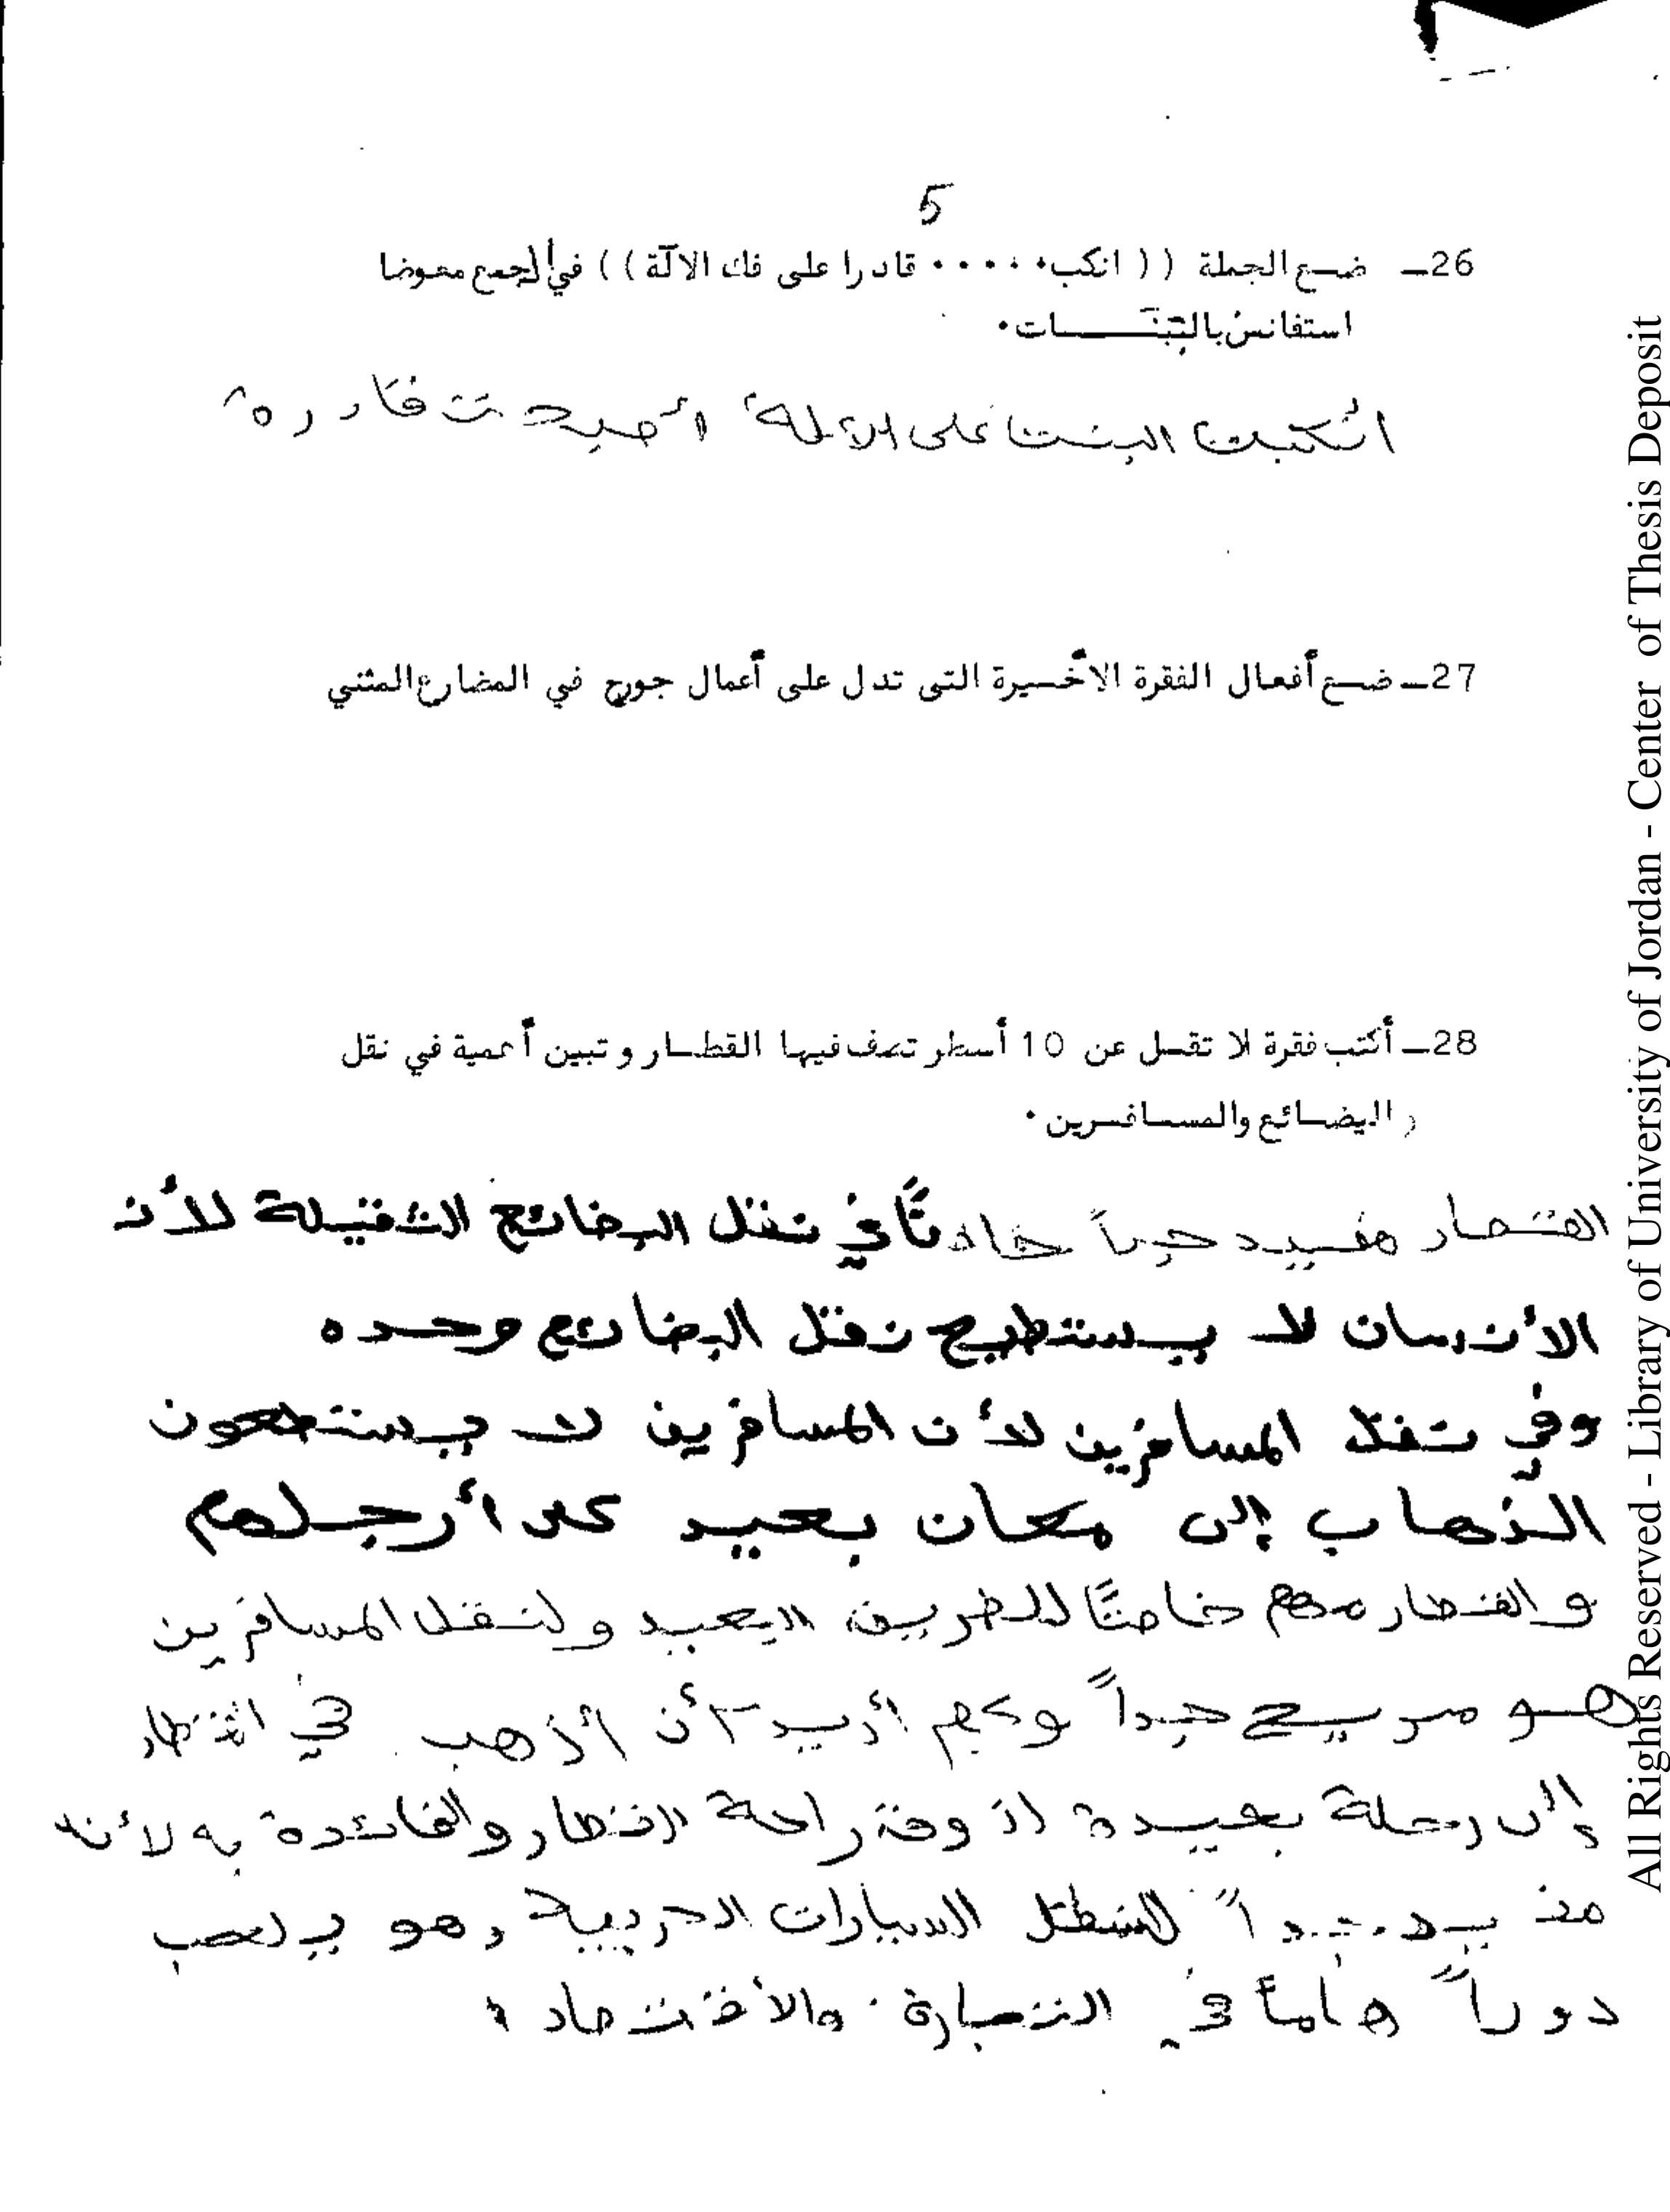 5
26ـ ضع الجملة (( انكب ..... قادرا على فك الالة )) في الجمع معوضا
استفانس بالبنات .
انكبت البنت على الالة أصبحت قادرة
27ـ ضع أفعال الفقرة الاخيرة التى تدل على أعمال جورج في المضارع المثني
28ـ أكتب فقرة لا تقل عن 10 أسطر تصف فيها القطار و تبين أهمية في نقل
البضائع والمسافرين .
القطار مفيد جداً خاصتًا في نقل البضائع الثقيلة لأن
الأنسان لا يستطيع نقل البضائع وحده
وفي نقل المسافرين لأن المسافرين لا يستطعون
الذهاب إلى مكان بعيد على أرجلهم
و القطار مهم خاصتًا للطريق البعيد و لنقل المسافرين
هو مريح جداً وكم أريد أن أذهب في القطار
إلى رحلة بعيدة راحة القطار والفائدة به لأنه
مفيد جداً لنقل السيارات الحربية وهو يلعب
دوراً هاماً في التجارة والأقتصاد .
All Rights Reserved - Library of University of Jordan - Center of Thesis Deposit